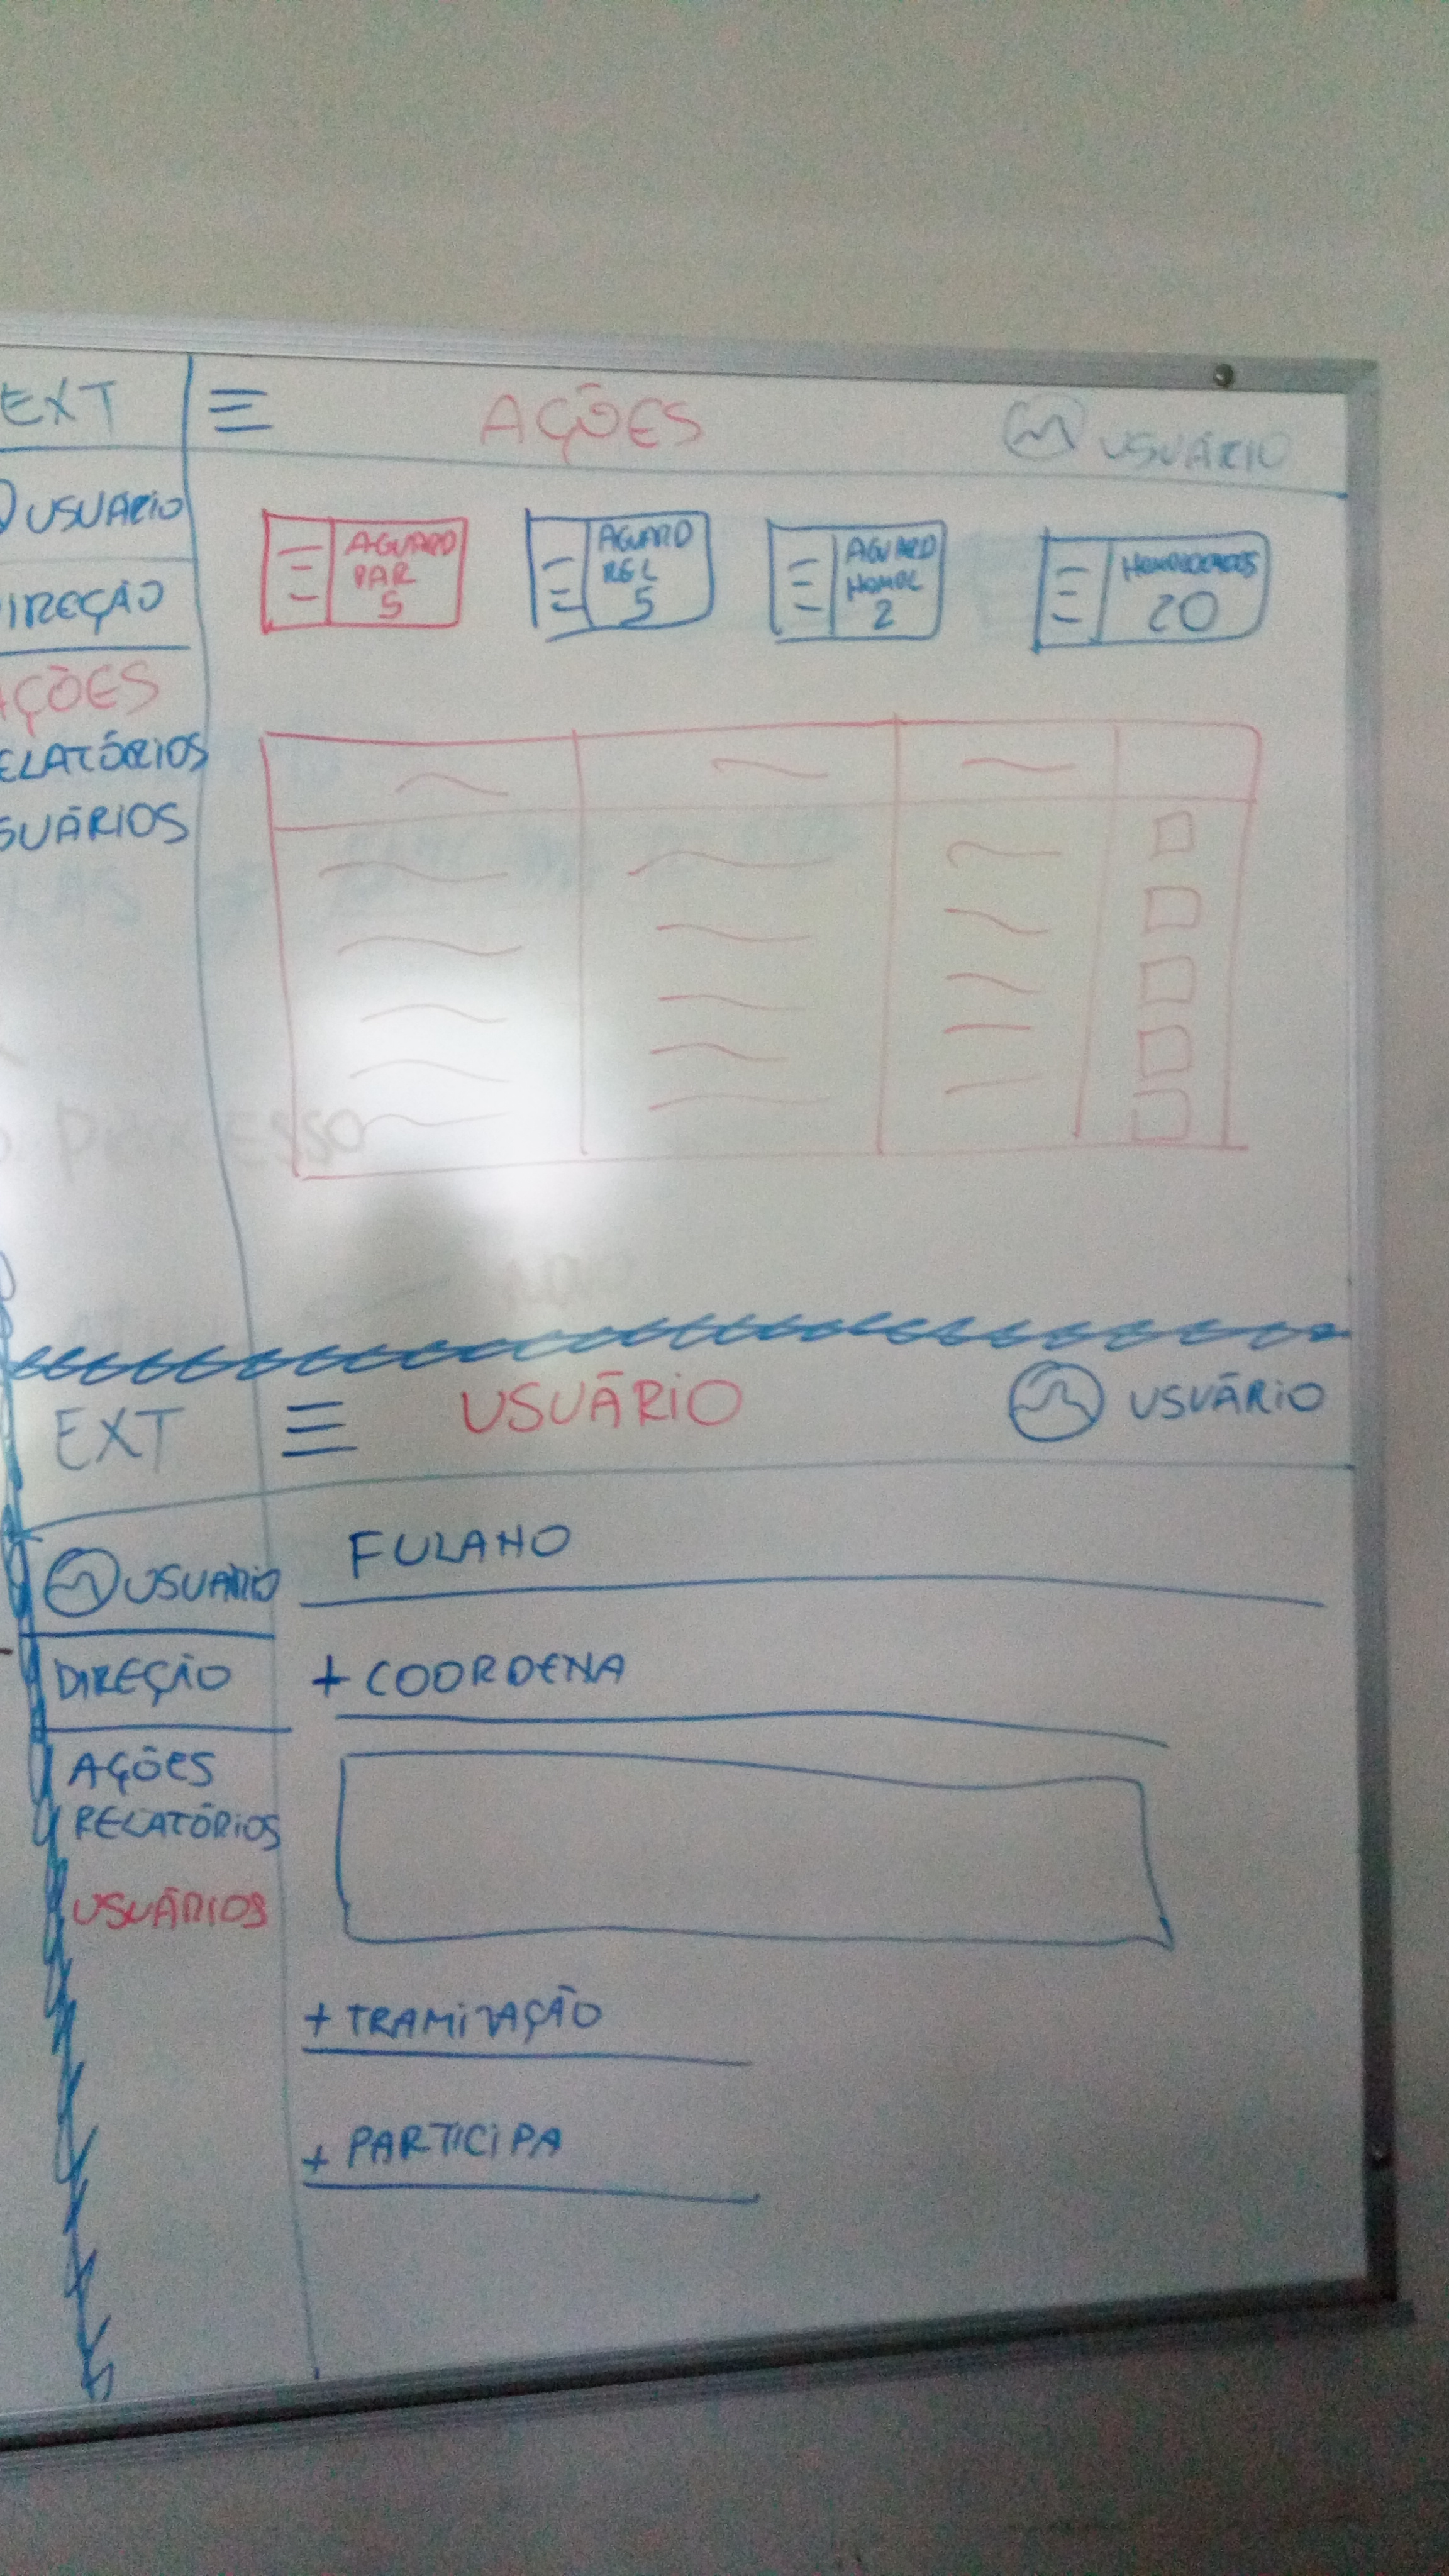 EXT
AÇÕES
USUÁRIO
USUÁRIO
IREÇÃO
AÇÕES
ELATÓRIOS
SUÁRIOS
AGUARD
PAR
5
AGUARD
REL
5
AGUARD
HOMOL
2
HOMOLOGADOS
20
PROCESSO
EXT
USUÁRIO
USUÁRIO
USUÁRIO
DIREÇÃO
AÇÕES
RELATÓRIOS
USUÁRIOS
FULANO
+ COORDENA
+ TRAMITAÇÃO
+ PARTICIPA